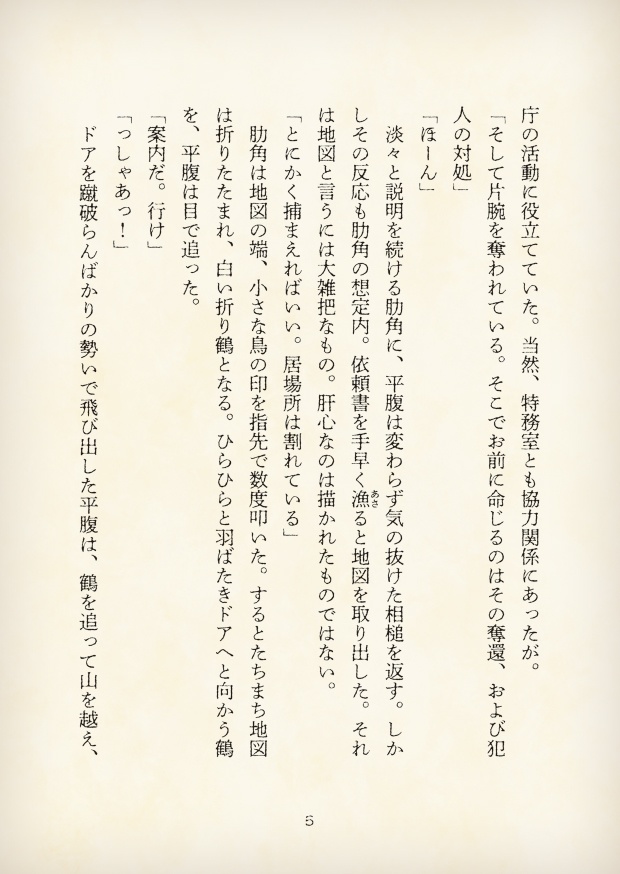 庁の活動に役立てていた。当然、特務室とも協力関係にあったが。
「そして片腕を奪われている。そこでお前に命じるのはその奪還、および犯
人の対処」
「ほーん」
淡々と説明を続ける肋角に、平腹は変わらず気の抜けた相槌を返す。しか
しその反応も肋角の想定内。依頼書を手早く漁あさると地図を取り出した。それ
は地図と言うには大雑把なもの。肝心なのは描かれたものではない。
「とにかく捕まえればいい。居場所は割れている」
肋角は地図の端、小さな鳥の印を指先で数度叩いた。するとたちまち地図
は折りたたまれ、白い折り鶴となる。ひらひらと羽ばたきドアへと向かう鶴
を、平腹は目で追った。
「案内だ。行け」
「っしゃあっ！」
ドアを蹴破らんばかりの勢いで飛び出した平腹は、鶴を追って山を越え、
5